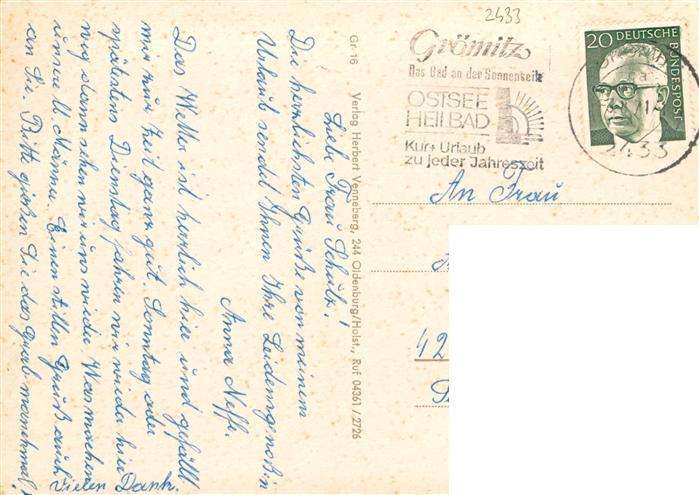 2433
Grömitz
Das Bad an der Sonnenseite
OSTSEE
HEILBAD
Kur + Urlaub
zu jeder Jahreszeit
20 DEUTSCHE
BUNDESPOST
2433
An Frau
42
Gr 16 Verlag Herbert Venneberg, 244 Oldenburg/Holst., Ruf 04361/2726
Liebe Frau Schulz!
Die herzlichsten Grüße von meinem
Urlaub sendet Ihnen Ihre Leidensgenossin
Anna Neffe.
Das Wetter ist herrlich hier und gefällt
mir zur Zeit ganz gut. Sonntag oder
spätestens Dienstag fahren wir wieder hier
weg dann sehen wir uns wieder. Was machen
Einen stillen Gruß auch
an Sie. Bitte gießen Sie das Grab manchmal
Vielen Dank.